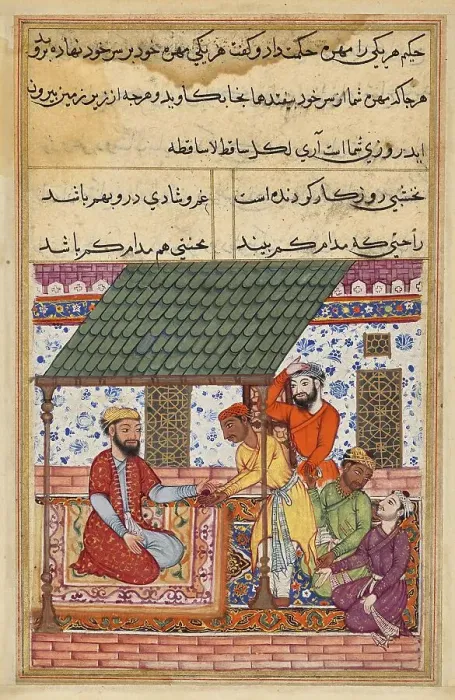 حکیم هر یکی را مهره حکمت داد و گفت هر یکی مهره خود بر سر خود نهاده بروید
هر جا که مهره شما از سر خود بیفتد ها بخا بکاوید و هرچه از زیر زمین بیرون
اید روزی شما است آری لکل ساقط لاساقطه
نخشبی روزکار کردنده است غم و شادی درو بهم باشد
راحتی که مدام کم بیند محنتی هم مدام کم باشد